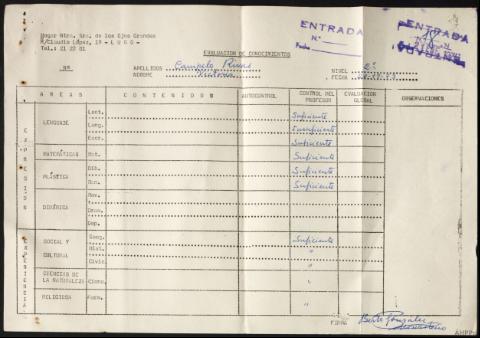 Hogar Ntra. Sra. de los Ojos Grandes
C/Claudio López, 19 - LUGO -
Tel.: 21 22 01
ENTRADA
Nº
Fecha
ENTRADA
EVALUACION DE CONOCIMIENTOS
Nº APELLIDOS Campelo Rivas NIVEL 2º
NOMBRE Victoria FECHA
AREAS CONTENIDOS AUTOCONTROL CONTROL DEL PROFESOR EVALUACION GLOBAL OBSERVACIONES
EXPRESIÓN
LENGUAJE
Lect. Suficiente
Leng. Insuficiente
Escr. Suficiente
MATEMÁTICAS Mat. Suficiente
PLÁSTICA
Dib. Suficiente
Man. Suficiente
DINÁMICA
Dram.
Dep.
EXPERIENCIA
SOCIAL Y CULTURAL
Geog. Suficiente
Hist. "
Civic. "
CIENCIAS DE LA NATURALEZA Cienc. "
RELIGIOSA Form. "
FIRMA
AHPP